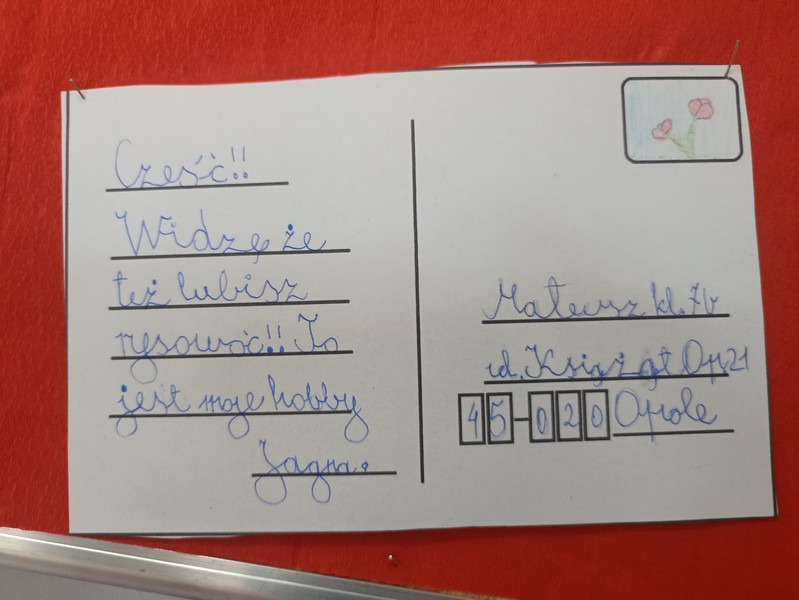 Cześć!!
Widzę że
też lubisz
rysować!! To
jest moje hobby
Jagna.
Mateusz kl. 7b
ul. Książąt Op 21
45-020 Opole